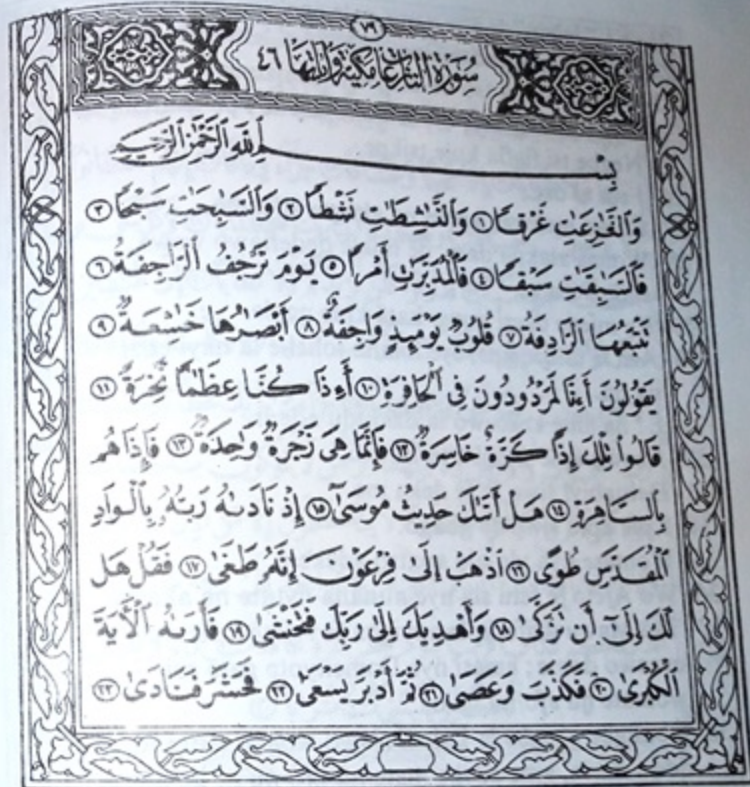 ٧٩
سُورَةُ النَّازِعَاتِ مَكِّيَّة وَآيَاتُهَا ٤٦
بِسْمِ ٱللَّهِ ٱلرَّحْمَٰنِ ٱلرَّحِيمِ
وَٱلنَّٰزِعَٰتِ غَرْقًا ١ وَٱلنَّٰشِطَٰتِ نَشْطًا ٢ وَٱلسَّٰبِحَٰتِ سَبْحًا ٣
فَٱلسَّٰبِقَٰتِ سَبْقًا ٤ فَٱلْمُدَبِّرَٰتِ أَمْرًا ٥ يَوْمَ تَرْجُفُ ٱلرَّاجِفَةُ ٦
تَتْبَعُهَا ٱلرَّادِفَةُ ٧ قُلُوبٌ يَوْمَئِذٍ وَاجِفَةٌ ٨ أَبْصَٰرُهَا خَٰشِعَةٌ ٩
يَقُولُونَ أَءِنَّا لَمَرْدُودُونَ فِى ٱلْحَافِرَةِ ١٠ أَءِذَا كُنَّا عِظَٰمًا نَّخِرَةً ١١
قَالُوا۟ تِلْكَ إِذًا كَرَّةٌ خَاسِرَةٌ ١٢ فَإِنَّمَا هِىَ زَجْرَةٌ وَٰحِدَةٌ ١٣ فَإِذَا هُم
بِٱلسَّاهِرَةِ ١٤ هَلْ أَتَىٰكَ حَدِيثُ مُوسَىٰٓ ١٥ إِذْ نَادَىٰهُ رَبُّهُۥ بِٱلْوَادِ
ٱلْمُقَدَّسِ طُوًى ١٦ ٱذْهَبْ إِلَىٰ فِرْعَوْنَ إِنَّهُۥ طَغَىٰ ١٧ فَقُلْ هَل
لَّكَ إِلَىٰٓ أَن تَزَكَّىٰ ١٨ وَأَهْدِيَكَ إِلَىٰ رَبِّكَ فَتَخْشَىٰ ١٩ فَأَرَىٰهُ ٱلْءَايَةَ
ٱلْكُبْرَىٰ ٢٠ فَكَذَّبَ وَعَصَىٰ ٢١ ثُمَّ أَدْبَرَ يَسْعَىٰ ٢٢ فَحَشَرَ فَنَادَىٰ ٢٣